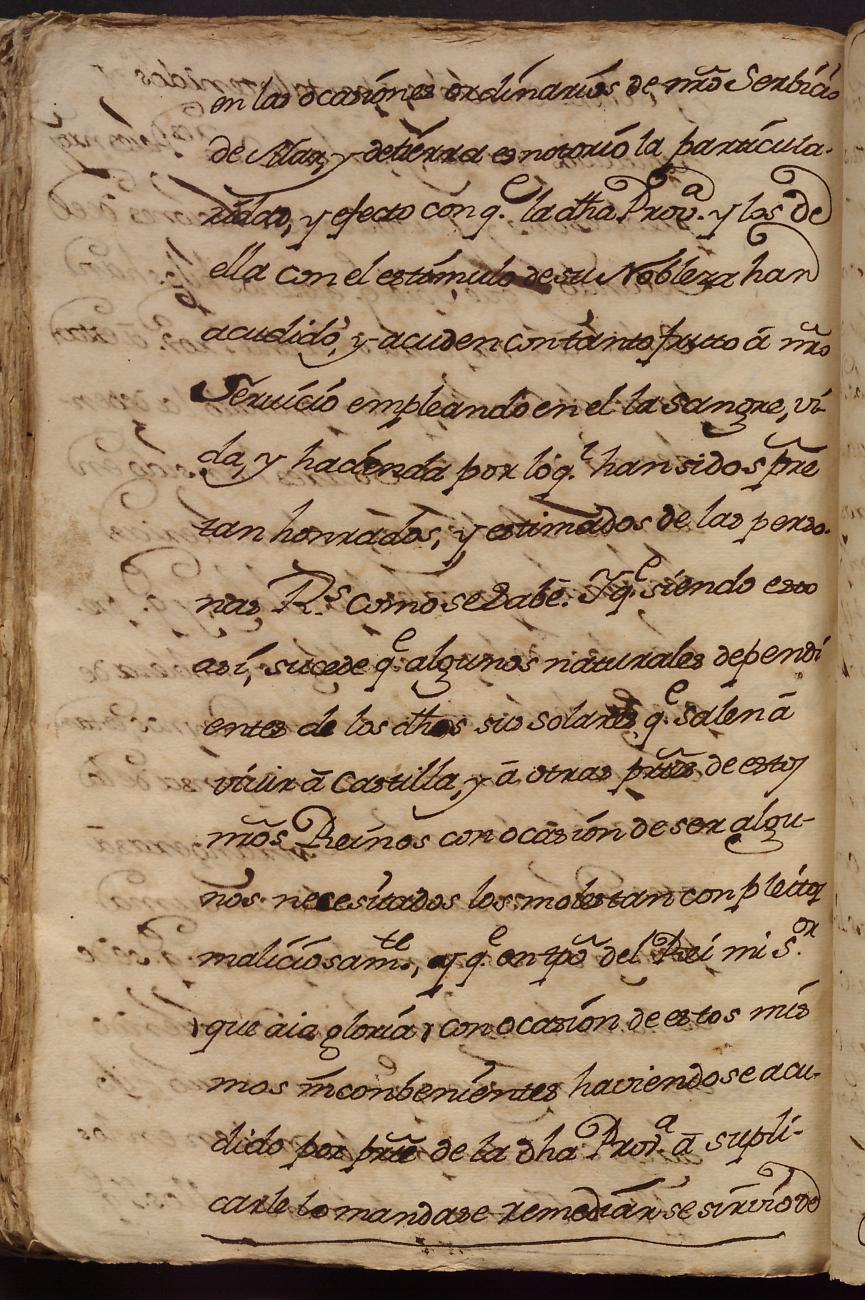 en las ocasiones ordinarias de nr̃o Serbicio
de Mar, y de tierra es notorio la particula-
ridad, y efecto con q.e la dha Prov.a y los de
ella con el estimulo de su Nobleza han
acudido, y acuden con tanto fruto á nr̃o
Servicio empleando en el la sangre, vi-
da, y hacienda por lo q.l han sidos spr̃e
tan honrados, y estimados de las perso-
nas R.s como se sabe. Y q.e siendo esto
asi, sucede q.e algunos naturales dependi
entes de los dhos sus solares q.e salen á
vivir á Castilla, y á otras pr̃tes de estos
nr̃os Reinos con ocasion de ser algu-
nos necesitados los molestan con pleitos
maliciosam.te, y q.e en tp̃o del Rei mi S.or
(que aia gloria) con ocasion de estos mis
mos inconbenientes haviendose acu-
dido por pr̃te de la dha Prov.a á supli-
carle lo mandase remediar se sirvio de